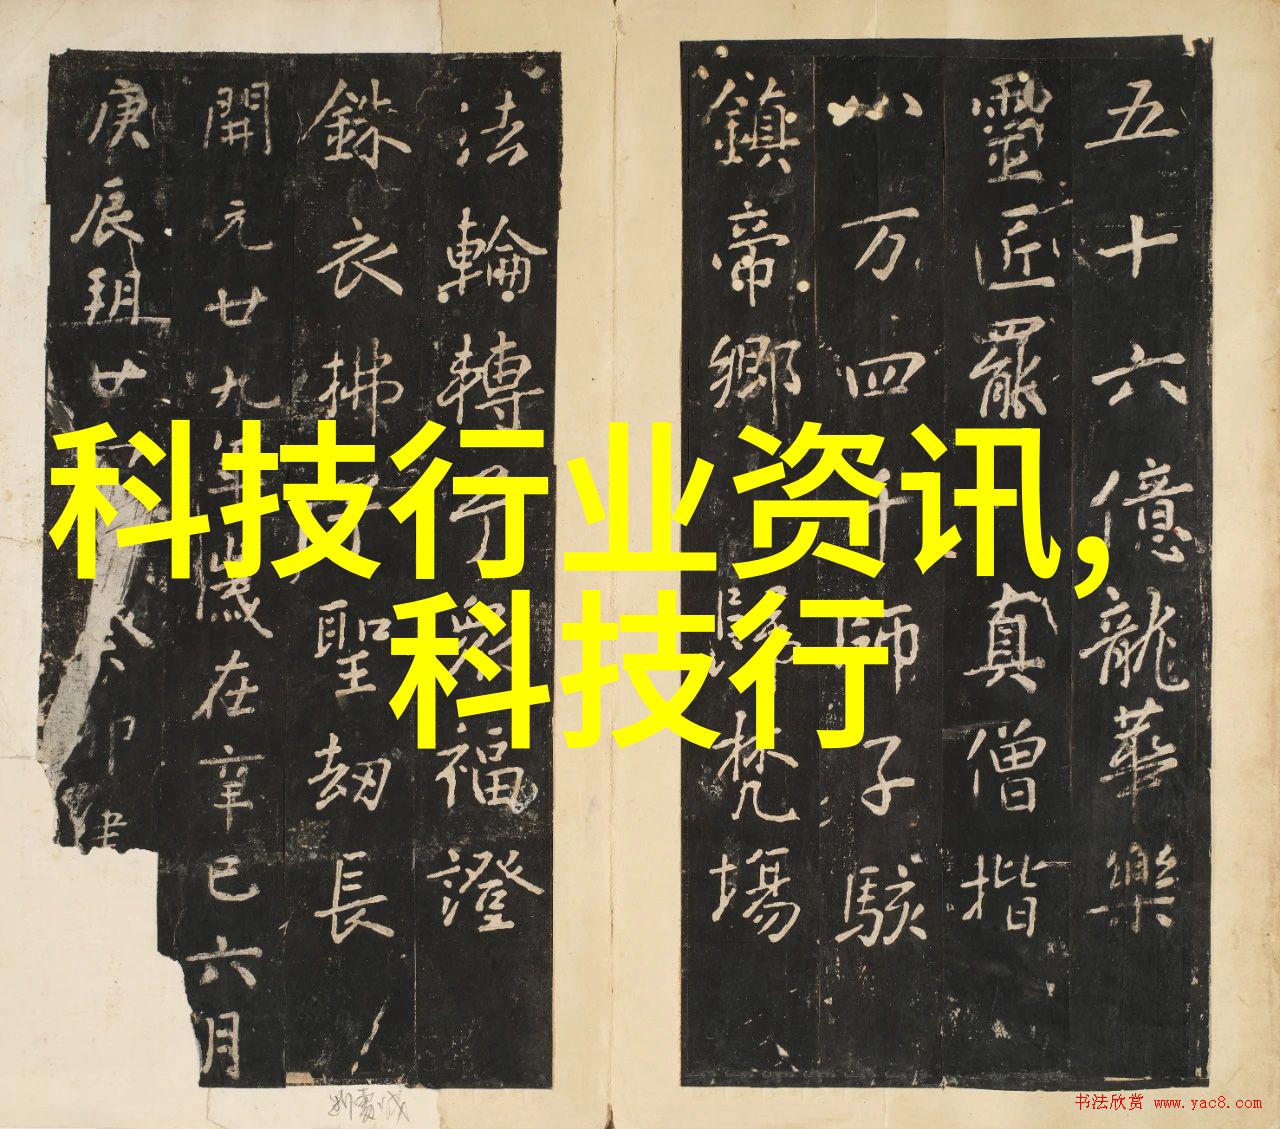 五十六億龍華樂
靈匠罷 真僧揩
八万四千師子駭
鎮帝鄉 梵場
法輪轉兮 福證
銖衣拂 聖劫長
開元廿九年歲在辛巳六月
庚辰朔廿 癸卯建
科技行业资讯,
科技行
书法欣赏 www.yac8.com